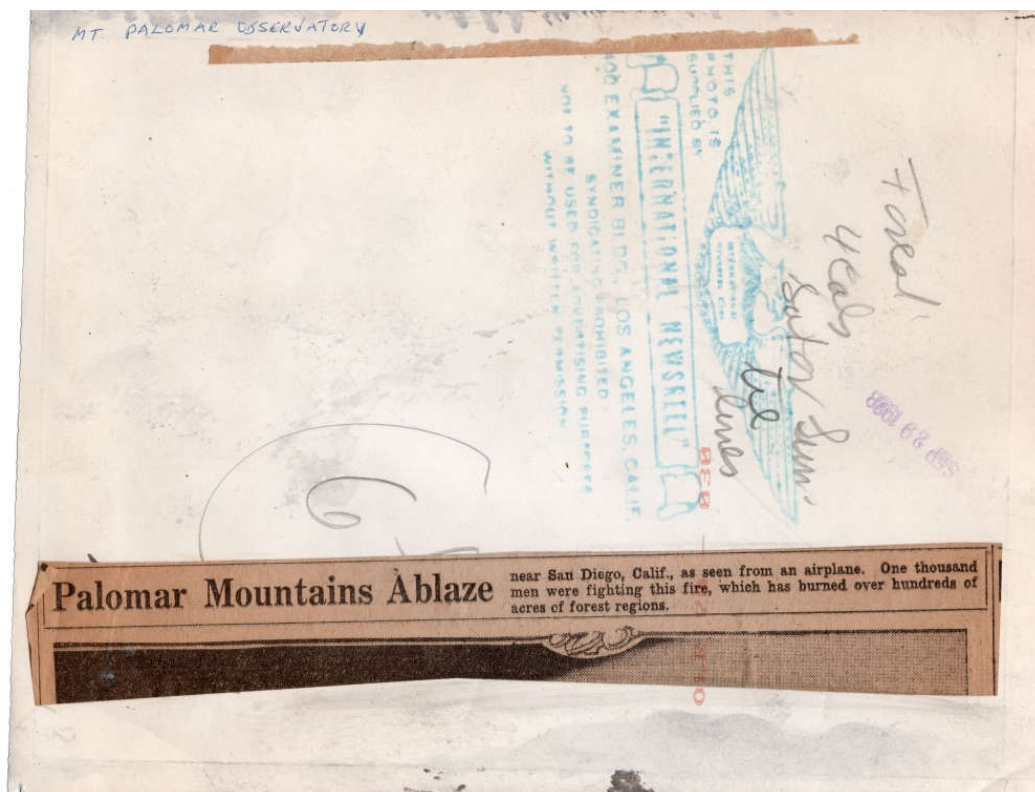 MT. PALOMAR OBSERVATORY
THIS
PHOTO IS
SUPPLIED BY
"INTERNATIONAL NEWSREEL"
EXAMINER BLDG., LOS ANGELES, CALIF.
SYNDICATING PROHIBITED
NOT TO BE USED FOR ADVERTISING PURPOSES
WITHOUT WRITTEN PERMISSION
4 Cals
SEP 29 1928
6
Palomar Mountains Ablaze
near San Diego, Calif., as seen from an airplane. One thousand
men were fighting this fire, which has burned over hundreds of
acres of forest regions.